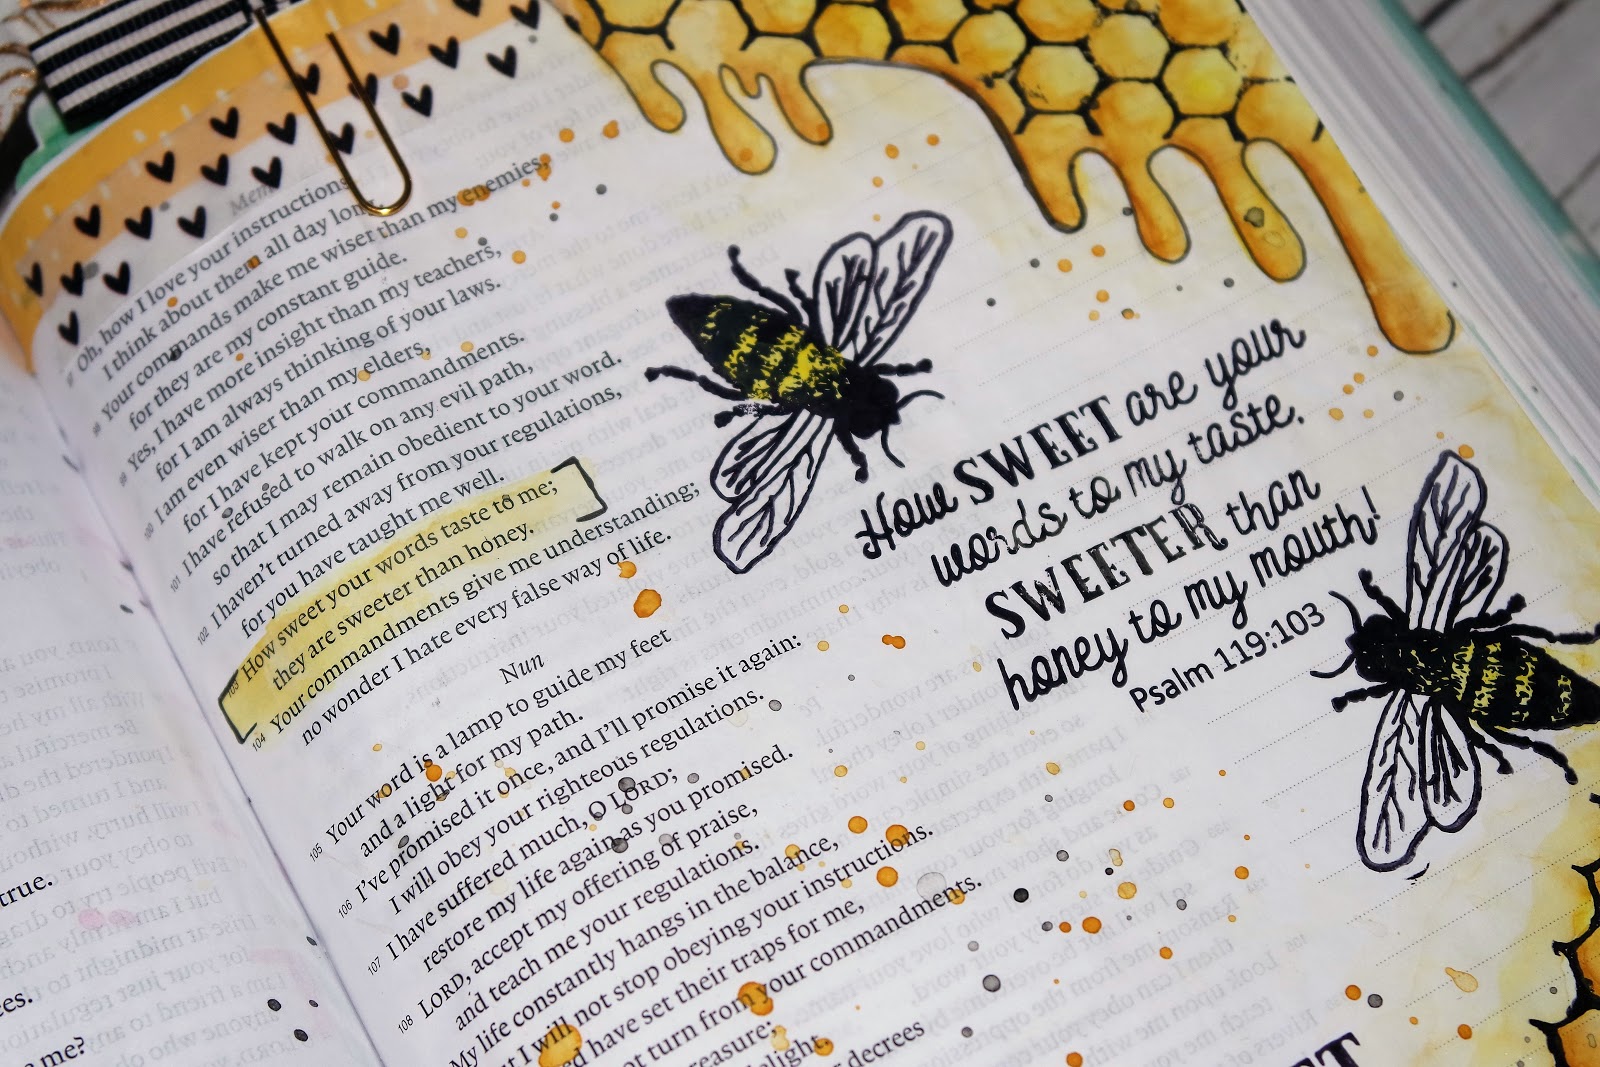 Mem
97 Oh, how I love your instructions!
I think about them all day long.
98 Your commands make me wiser than my enemies,
for they are my constant guide.
99 Yes, I have more insight than my teachers,
for I am always thinking of your laws.
100 I am even wiser than my elders,
for I have kept your commandments.
101 I have refused to walk on any evil path,
so that I may remain obedient to your word.
102 I haven't turned away from your regulations,
for you have taught me well.
103 How sweet your words taste to me;
they are sweeter than honey.
104 Your commandments give me understanding;
no wonder I hate every false way of life.
Nun
105 Your word is a lamp to guide my feet
and a light for my path.
106 I've promised it once, and I'll promise it again:
I will obey your righteous regulations.
107 I have suffered much, O LORD;
restore my life again as you promised.
108 LORD, accept my offering of praise,
and teach me your regulations.
My life constantly hangs in the balance,
I will not stop obeying your instructions.
have set their traps for me,
not turn from your commandments.
treasure;
delight.
decrees
How SWEET are your
words to my taste,
SWEETER than
honey to my mouth!
Psalm 119:103
true.
me?